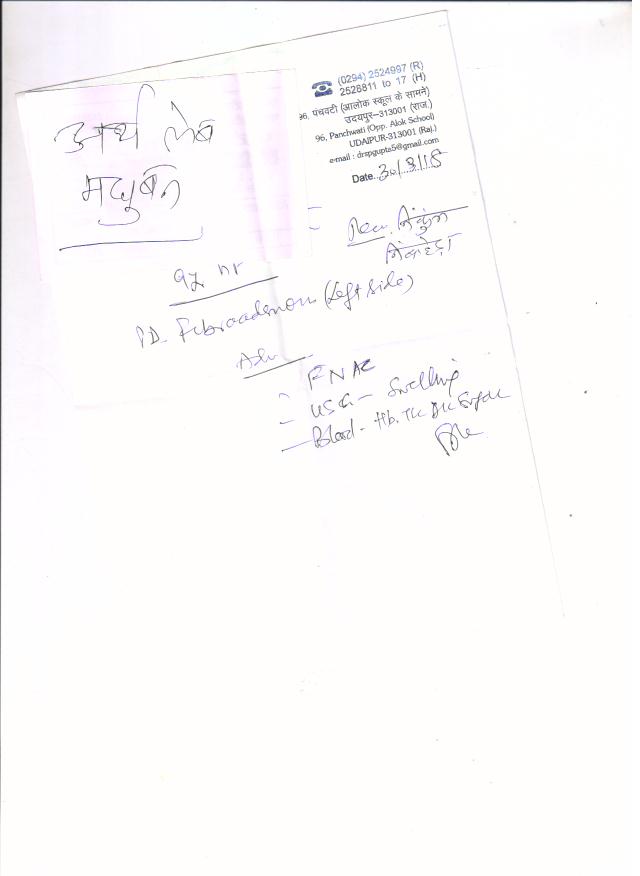 अर्थ लेब
मधुबन
(0294) 2524997 (R)
2528811 to 17 (H)
96, पंचवटी (आलोक स्कूल के सामने)
उदयपुर-313001 (राज.)
96, Panchwati (Opp. Alok School)
UDAIPUR-313001 (Raj.)
e-mail : drspgupta5@gmail.com
Date..30/3/15
निकुंभ
PD. Fibroadenom (Left side)
Adv
FNAC
USG - Swelling
Blood - Hb. TLC DLC Sugar